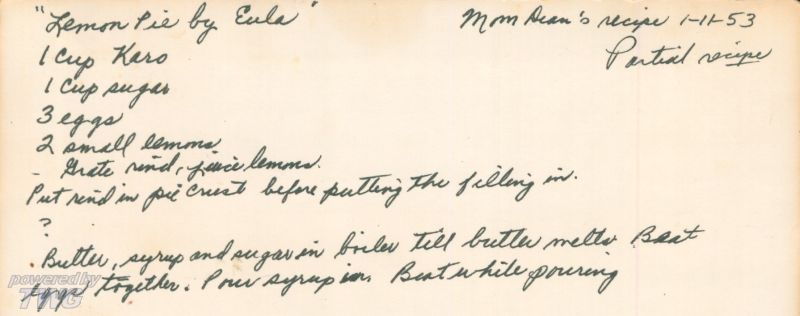 "Lemon Pie by Eula"
Mom Dean's recipe 1-11-53
Partial recipe
1 cup Karo
1 cup sugar
3 eggs
2 small lemons
- Grate rind, juice lemons.
Put rind in pie crust before putting the filling in.
?
Butter, syrup and sugar in boiler till butter melts Beat
eggs together. Pour syrup in. Beat while pouring
powered by
TNG